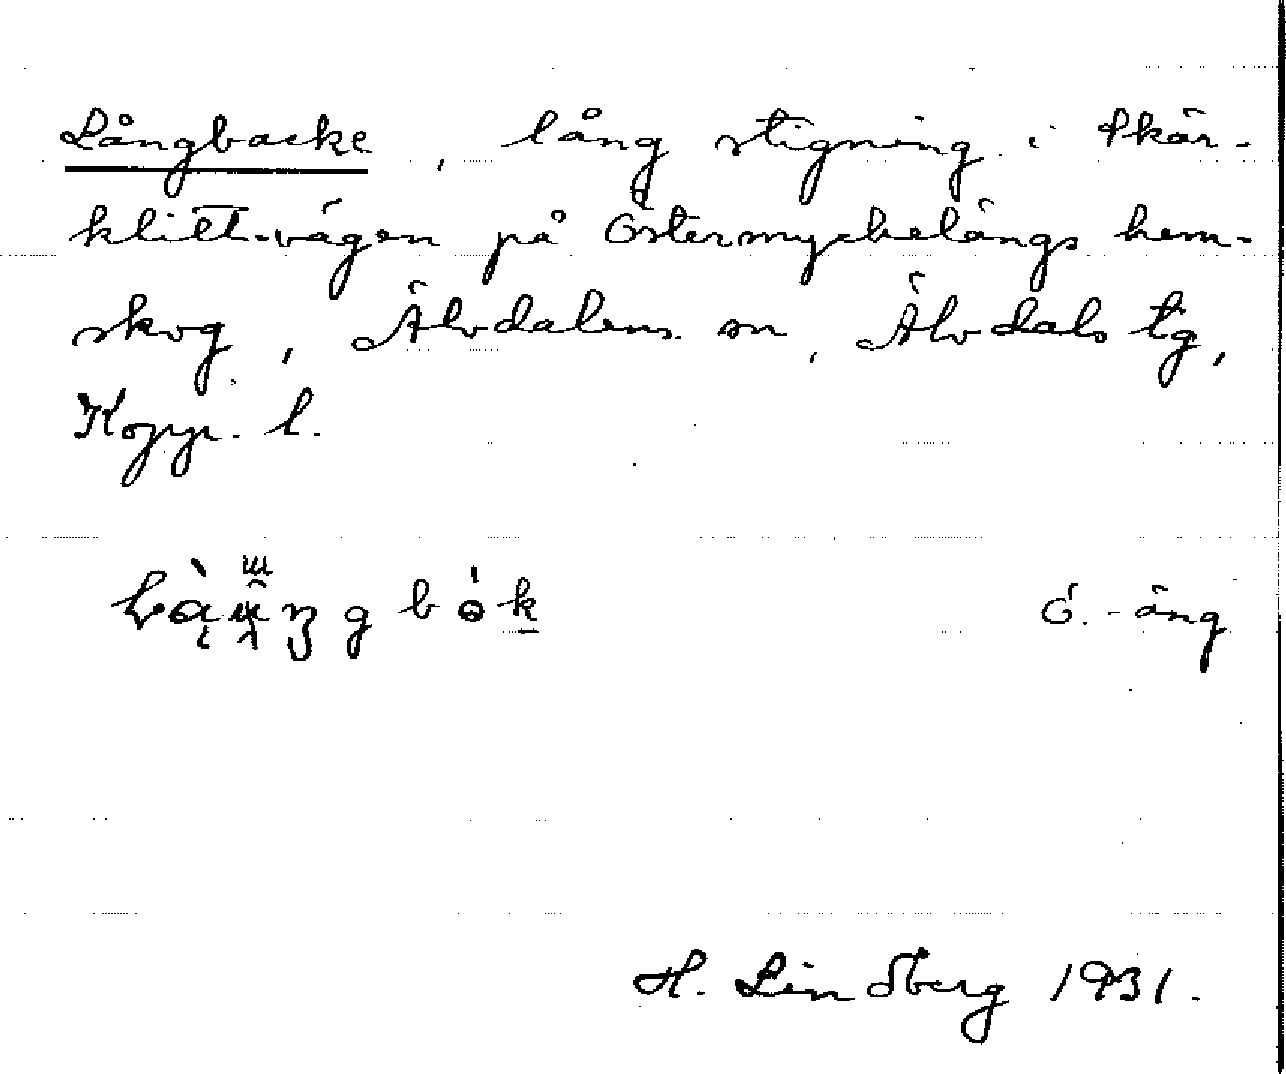 Långbacke, lång stigning i Skär-
klitt-vägen på Östermyckelängs hem-
skog, Älvdalens sn, Älvdals tg,
Kopp. l.
Ö.-äng
H. Lindberg 1931.